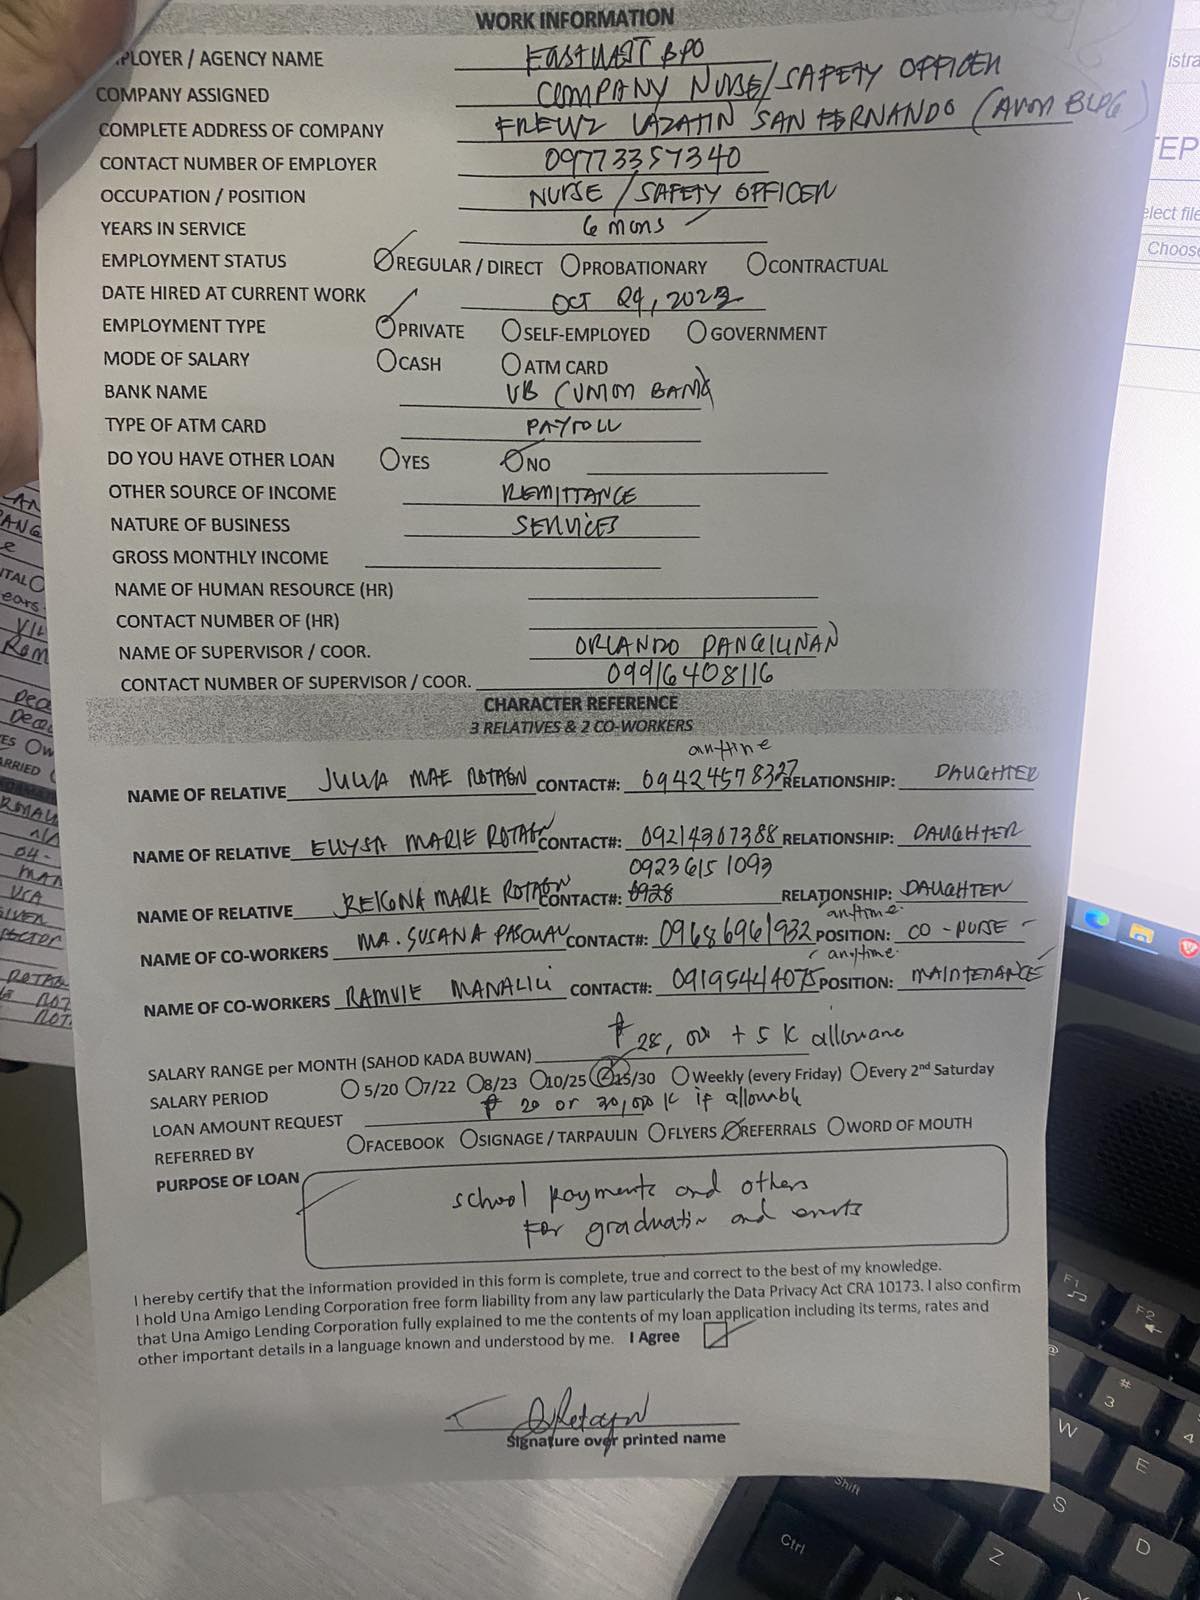 WORK INFORMATION
PLOYER / AGENCY NAME EASTWEST BPO
COMPANY ASSIGNED COMPANY NURSE/SAFETY OFFICER
COMPLETE ADDRESS OF COMPANY LAZATIN SAN FERNANDO (AVON BLDG)
CONTACT NUMBER OF EMPLOYER 09773357340
OCCUPATION / POSITION NURSE / SAFETY OFFICER
YEARS IN SERVICE 6 mons
EMPLOYMENT STATUS REGULAR / DIRECT PROBATIONARY CONTRACTUAL
DATE HIRED AT CURRENT WORK OCT 24, 2023
EMPLOYMENT TYPE PRIVATE SELF-EMPLOYED GOVERNMENT
MODE OF SALARY CASH ATM CARD
BANK NAME UB (UNION BANK)
TYPE OF ATM CARD PAYROLL
DO YOU HAVE OTHER LOAN YES NO
OTHER SOURCE OF INCOME REMITTANCE
NATURE OF BUSINESS SERVICES
GROSS MONTHLY INCOME
NAME OF HUMAN RESOURCE (HR)
CONTACT NUMBER OF (HR)
NAME OF SUPERVISOR / COOR. ORLANDO PANGILINAN
CONTACT NUMBER OF SUPERVISOR / COOR. 09916408116
CHARACTER REFERENCE
3 RELATIVES & 2 CO-WORKERS
anytime
NAME OF RELATIVE JULIA MAE CONTACT#: 09424578327 RELATIONSHIP: DAUGHTER
NAME OF RELATIVE ELLYSA MARIE CONTACT#: 09214307388 RELATIONSHIP: DAUGHTER
09236151093
NAME OF RELATIVE REIGNA MARIE CONTACT#: 0928 RELATIONSHIP: DAUGHTER
anytime
NAME OF CO-WORKERS MA. SUSANA PASCUAL CONTACT#: 09686961932 POSITION: CO - NURSE
anytime
NAME OF CO-WORKERS RAMVIE MANALILI CONTACT#: 09195414075 POSITION: MAINTENANCE
SALARY RANGE per MONTH (SAHOD KADA BUWAN) ₱ 28,000 + 5 K allowance
SALARY PERIOD 5/20 7/22 8/23 10/25 15/30 Weekly (every Friday) Every 2nd Saturday
LOAN AMOUNT REQUEST ₱ 20 or 30,000 K if allowable
REFERRED BY FACEBOOK SIGNAGE / TARPAULIN FLYERS REFERRALS WORD OF MOUTH
PURPOSE OF LOAN school payments and others
For graduation and events
I hereby certify that the information provided in this form is complete, true and correct to the best of my knowledge.
I hold Una Amigo Lending Corporation free form liability from any law particularly the Data Privacy Act CRA 10173. I also confirm
that Una Amigo Lending Corporation fully explained to me the contents of my loan application including its terms, rates and
other important details in a language known and understood by me. I Agree
Signature over printed name